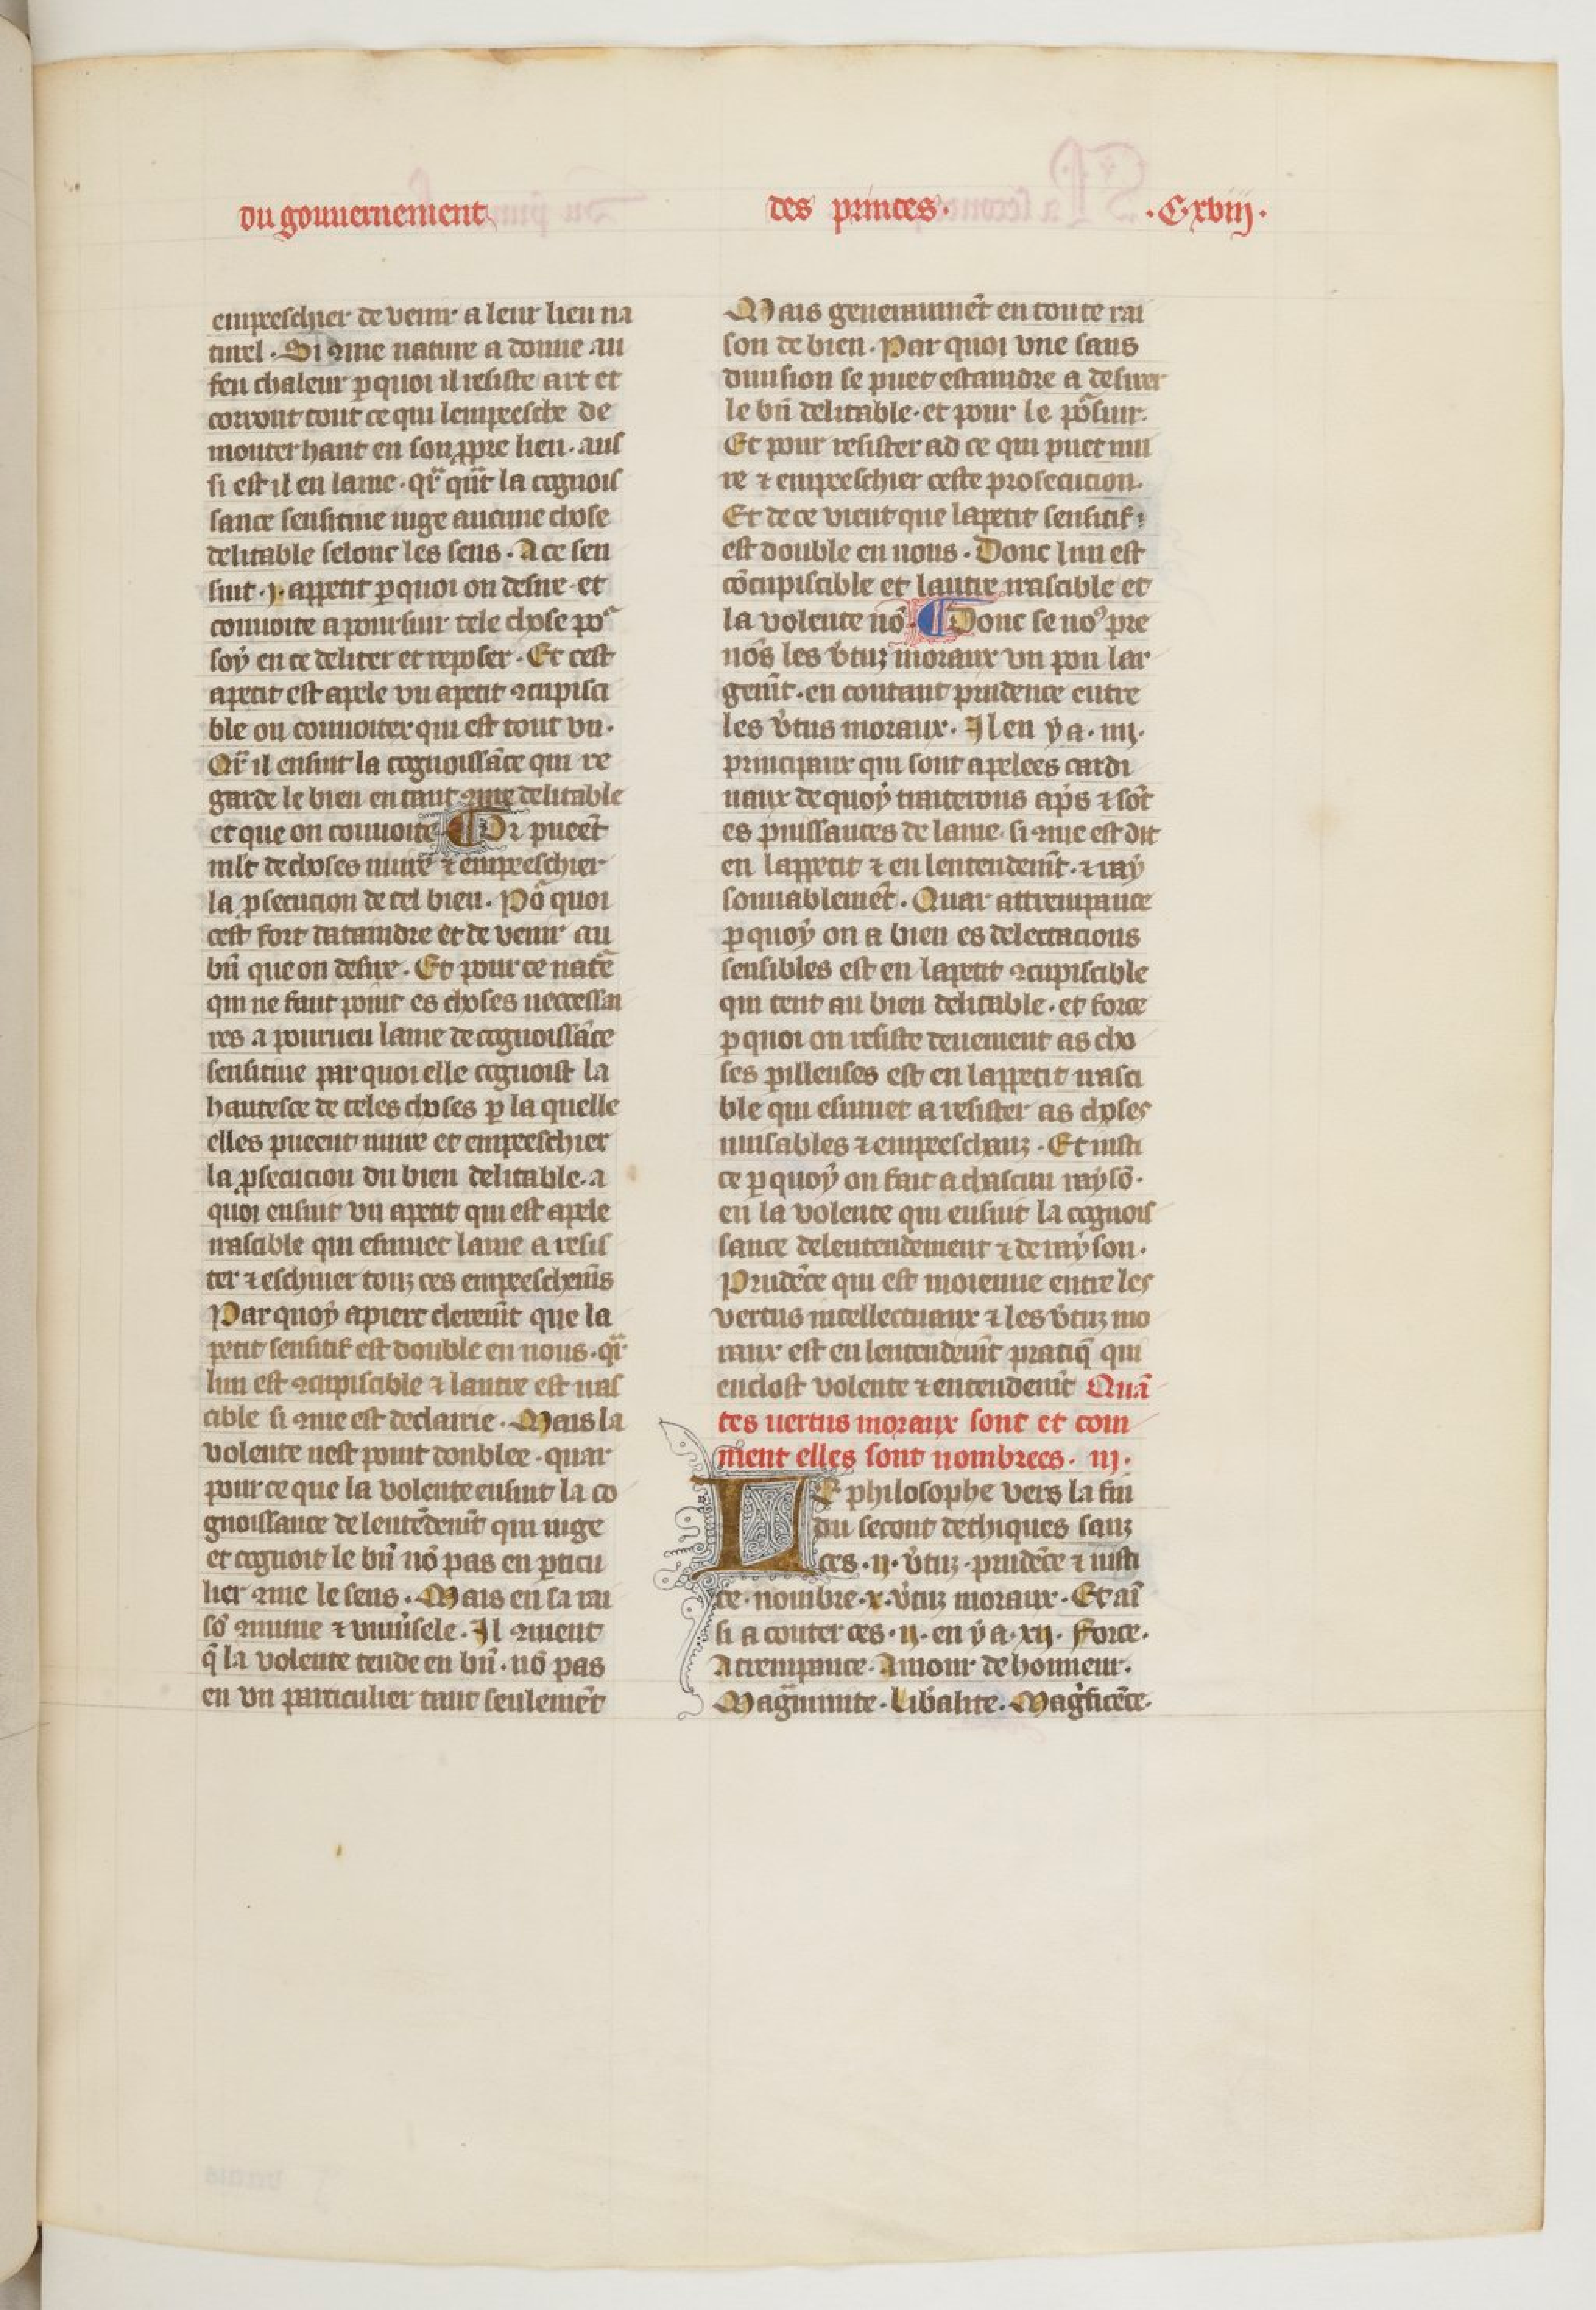 du gouuernement
des princes.
.Cxviij.
empeeschier de venir a leur lieu na
turel. Si 9me nature a donne au
feu chaleur ꝑquoi il resiste art et
corront tout ce qui lempeesche de
monter hault en son ꝓpre lieu. aus
si est il en lame. qr̃ qñt la cognois
sance sensitiue iuge aucune chose
delitable selonc les sens. A ce sen
suit .j. appetit ꝑquoi on desire et
conuoite a poursuir tele chose poᷣ
soẏ en ce deliter et reposer. Et cest
apetit est apele vn apetit 9cupisci
ble ou conuoiter qui est tout vn.
Qr̃ il ensuit la cognoissãce qui re
garde le bien en tant 9me delitable
et que on conuoite ¶ Or pueẽt
mlt dechoses nuire ⁊ empeeschier
la ꝓsecucion de cel bien. Poᷣ quoi
cest fort dataindre et de venir au
bñ que on desire. Et pour ce natᷣe
qui ne faut point es choses neccessai
res a pourueu lame de cognoissãce
sensitiue par quoi elle cognoist la
hautesce de teles choses ꝑ la quelle
elles pueent nuire et empeeschier
la ꝓsecucion du bien delitable. a
quoi ensuit vn apetit qui est apele
irascible qui esmuet lame a resis
ter ⁊ eschiuer touz ces empeeschemẽs
Par quoẏ apiert cleremẽt que la
petit sensitif est double en nous. qr̃
lun est 9cupiscible ⁊ lautre est iras
cible si 9me est declairie. Mais la
volente nest point doublee. quar
pour ce que la volente ensuit la co
gnoissance de lentẽdemẽt qui iuge
et cognoit le bñ nõ pas en ꝑticu
lier 9me le sens. Mais en sa rai
sõ 9mune ⁊ vniũsele. Il 9uient
q̃ la volente tende en bñ. nõ pas
en vn particulier tant seulemẽt
Mais generaumẽt en toute rai
son de bien. Par quoi vne sans
diuision se puet estaindre a desirer
le bñ delitable. et pour le poᷣsuir.
Et pour resister ad ce qui puet nui
re ⁊ empeeschier ceste prosecucion.
Et de ce vient que lapetit sensitif
est double en nous. Donc lun est
cõcupiscible et lautre irascible et
la volente nõ. ¶ Donc se noꝰ pre
nõs les v̾tuz moraux vn pou lar
gemẽt. en contant prudence entre
les v̾tus moraux. Il en ẏ a. iiij.
principaux qui sont apelees cardi
naux de quoẏ traiterons ap̾s ⁊ sõt
es puissances de lame. si 9me est dit
en lappetit ⁊ en lentendemẽt. ⁊ raẏ
sonnablemẽt. Quar attrempance
ꝑquoẏ on a bien es delectacions
sensibles est en lapetit 9cupiscible
qui tent au bien delitable. et force
ꝑquoi on resiste deuement as cho
ses ꝑilleuses est en lappetit irasci
ble qui esmuet a resister as choses
nuisables ⁊ empeeschanz. Et iusti
ce ꝑquoẏ on fait a chascun raẏsõ.
en la volente qui ensuit la cognois
sance delentendement ⁊ de raẏson.
Prudẽce qui est moienne entre les
vertus intellectuaux ⁊ les v̾tuz mo
raux est en lentendemẽt pratiq̃ qui
enclost volente ⁊ entendemẽt Quã
tes uertus moraux sont et com
ment elles sont nombrees. iij.
LE philosophe vers la fin
du secont dethiques sanz
ces. ij. v̾tuz. prudẽce ⁊ iusti
ce. nombre. x. v̾tuz moraux. Et aĩ
si a conter ces. ij. en ẏ a. xij. Force.
Attrempance. Amour de honneur.
Magᷓnimite. Lib̾alite. Magᷤficẽce.